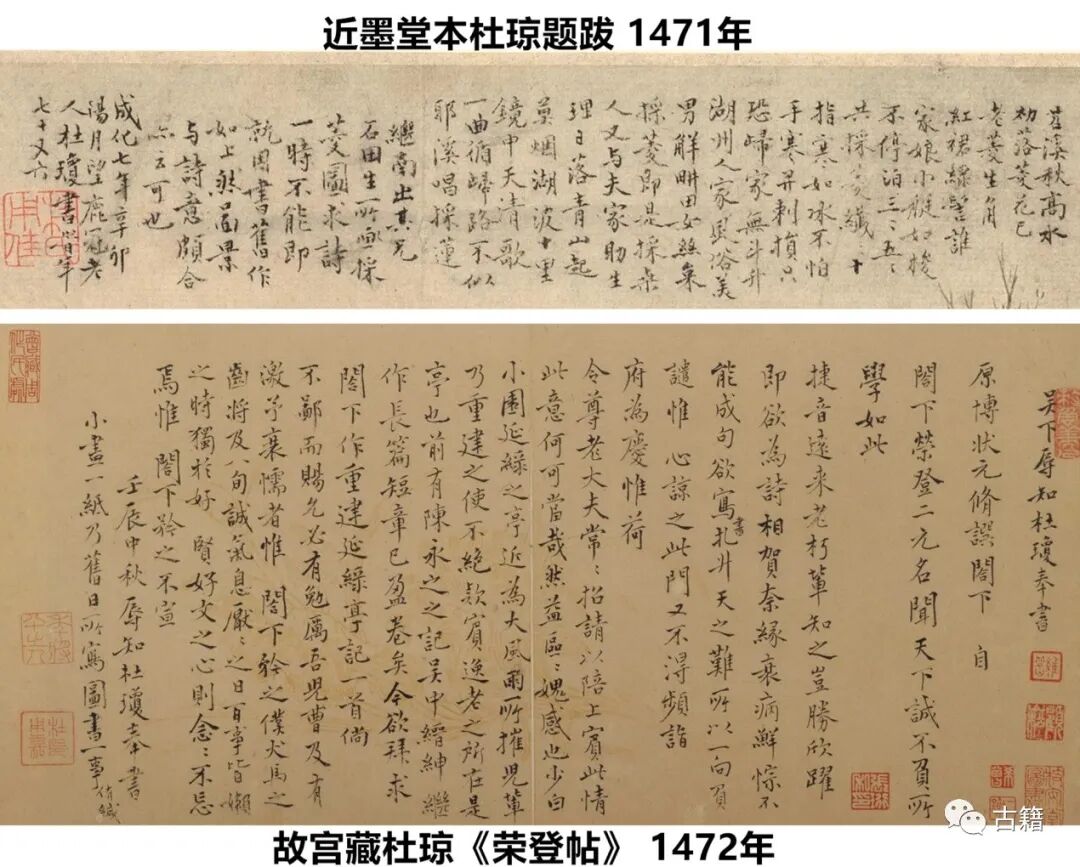 近墨堂本杜琼题跋 1471年
苕溪秋高水
初落菱花已
老菱生角
紅裙綠髻誰
家娘小艇如梭
不停泊三三五五
共採菱纖纖十
指寒如冰不怕
手寒并刺損只
恐歸家無斗升
湖州人家風俗美
男解畊田女絲枲
採菱即是採桑
人又与夫家助生
理日落青山起
莫烟湖波十里
鏡中天清歌
一曲循歸路不似
耶溪唱採蓮
繼南出其兄
石田生所画採
菱圖求詩
一時不能即
就因書舊作
如上然昌景
与詩意頗合
亦云可也
成化七年辛卯
陽月望鹿冠老
人杜瓊書皆年
七十又六
吴下辱知杜瓊奉書
原博狀元脩譔閣下 自
閣下榮登二元名聞天下誠不負所
學如此
捷音遠来老朽輩知之豈勝欣躍
即欲為詩相賀奈緣衰病鮮悰不
能成句欲寫書扎升天之難所以一向負
譴惟心諒之此門又不得頻詣
府為慶惟荷
令尊老大夫常常招請以陪上賓此情
此意何可當哉然益區區媿感也少白
小園延綠之亭近為大風雨所摧児輩
乃重建之使不絕欵賓逸老之所在是
亭也前有陳永之之記吴中縉紳繼
作長篇短章已盈卷矣今欲拜求
閣下作重建延綠亭記一首倘
不鄙而賜之必有勉厲吾児曹及有
激于衰懦者惟 閣下矜之僕犬馬之
齒將及八旬誠氣息厭厭之日百事皆嬾
之時獨於好 賢好文之心則念念不忘
焉惟 閣下矜之不宣
壬辰中秋辱知杜瓊奉書
小畫一紙乃舊日所寫圖書一事
古籍
故宫藏杜琼《荣登帖》 1472年